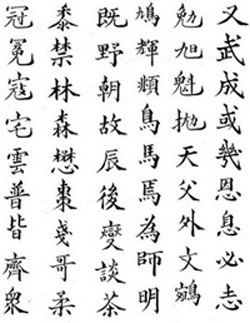 又武成或幾恩息必志
勉旭魁拋天父外文
鳩輝鳥馬焉為師明
既野朝故辰後變談茶
黍禁林森懋棗戔哥柔
冠冕寇宅雲普皆齊眾